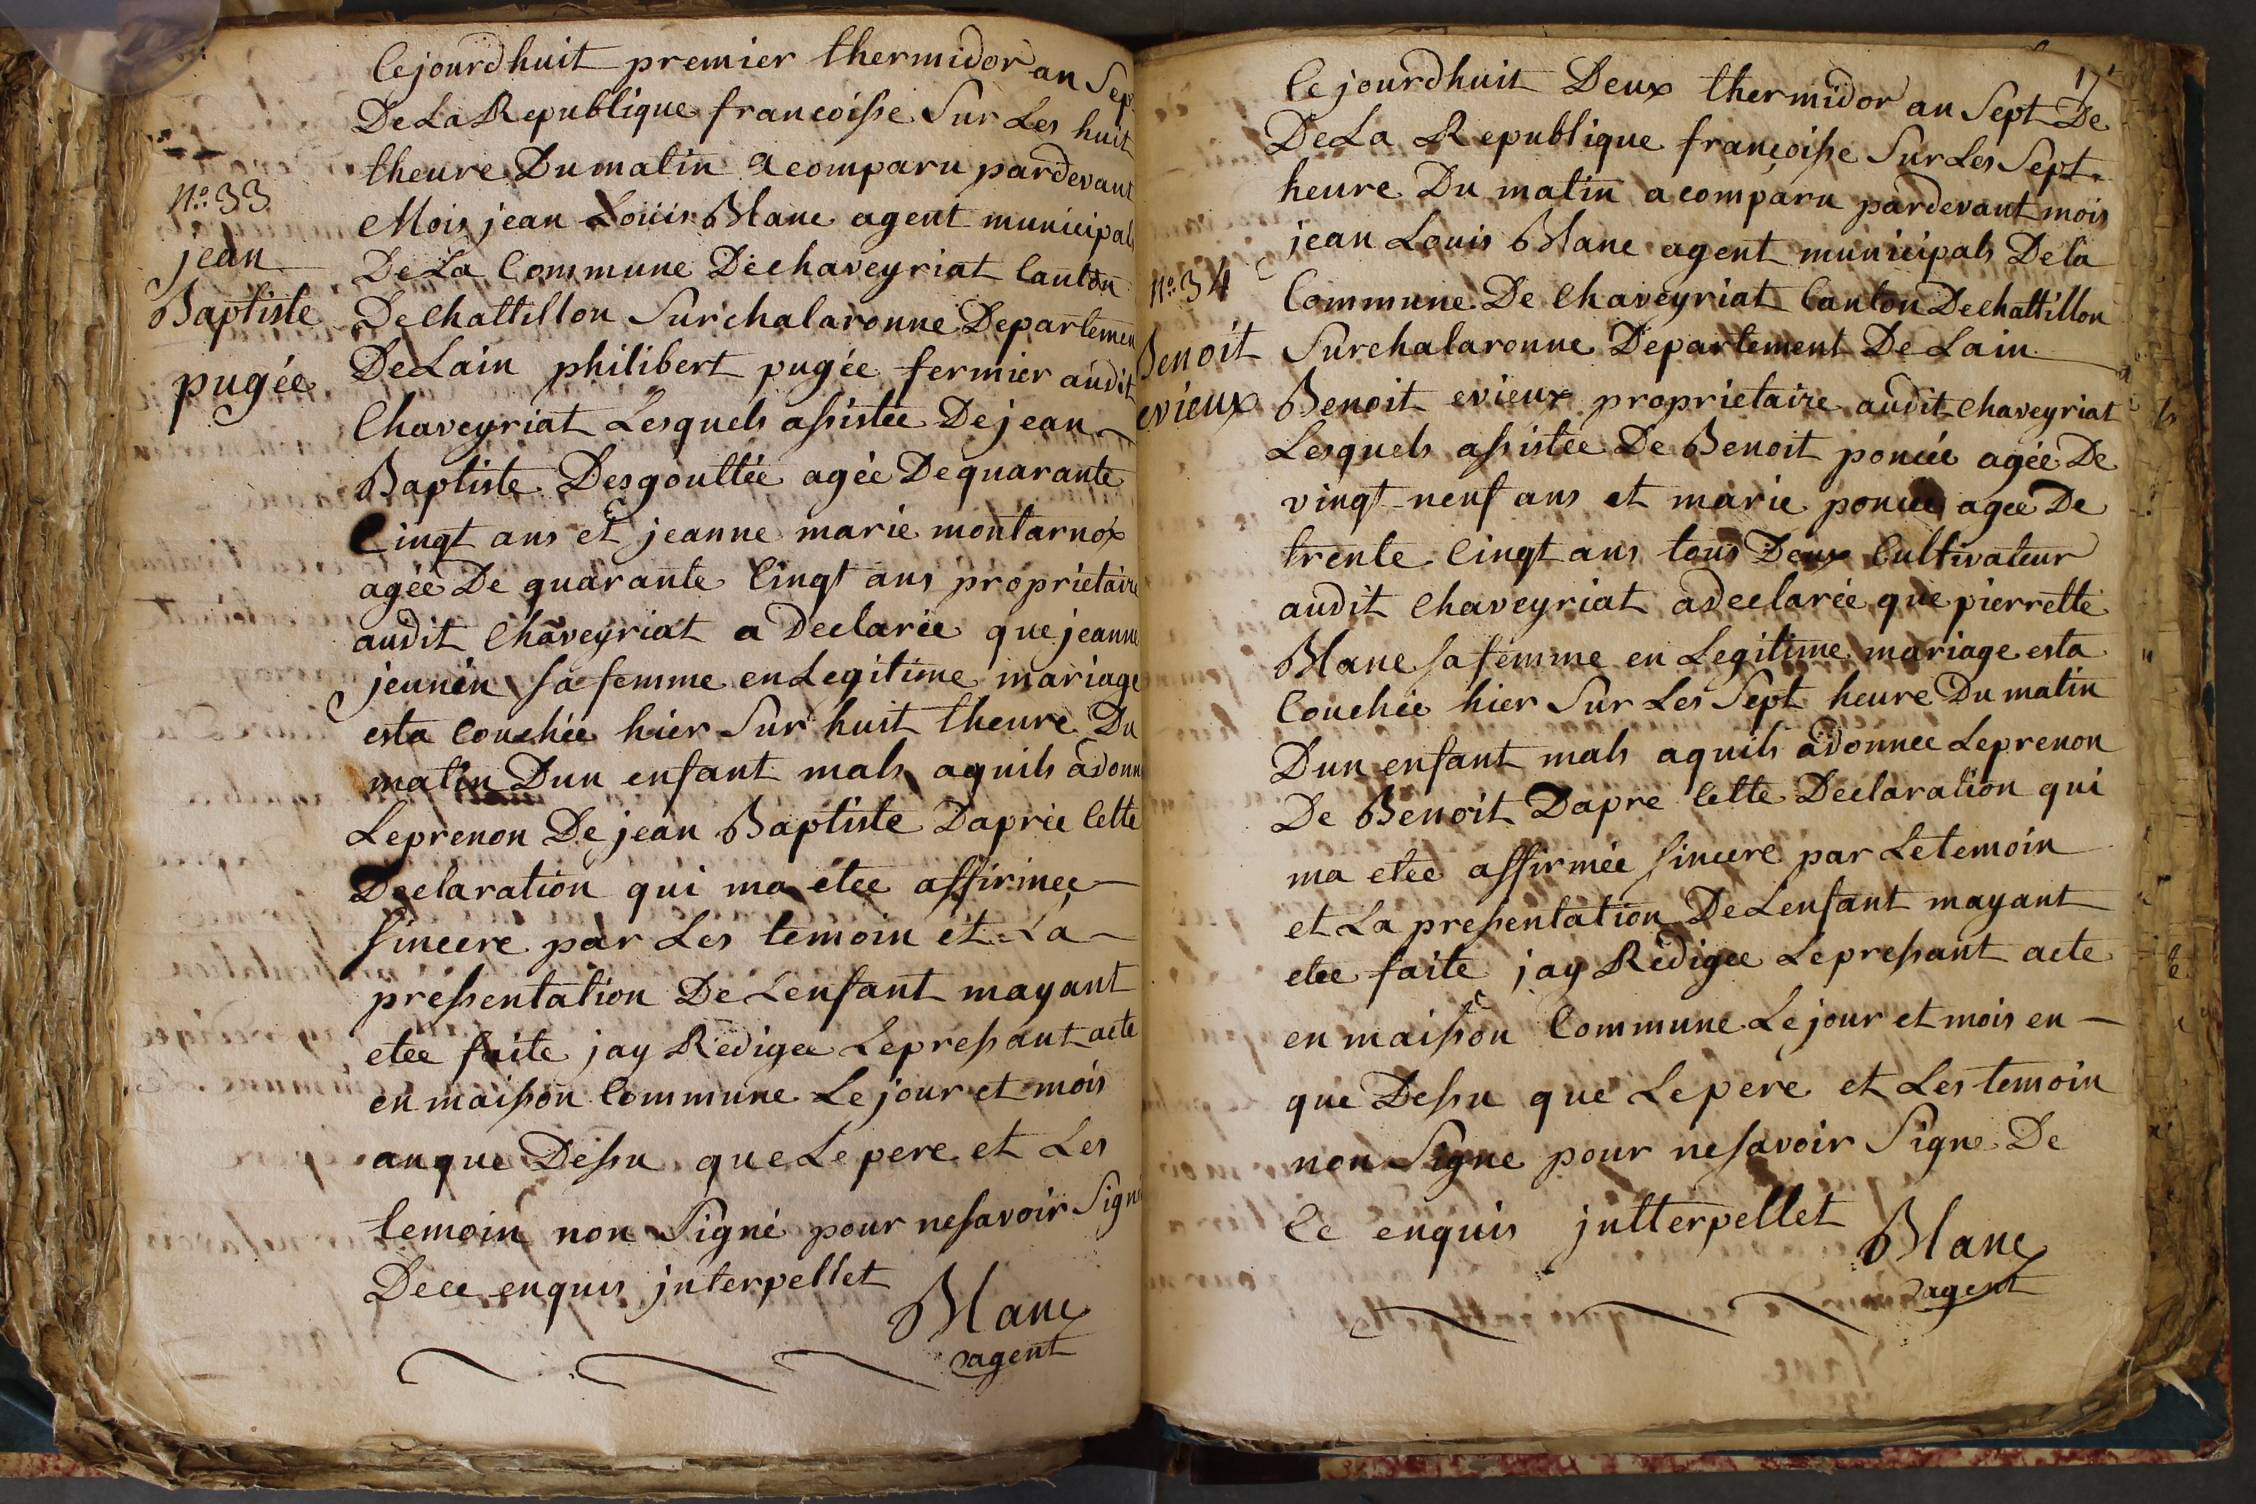 Cejourdhuit premier thermidor an Sept
De La Republique francoisse Sur Les huit
theure Du matin a comparu pardevant
Mois jean Louis Blanc agent municipals
De La Commune De chaveyriat Canton
De Chattillon Sur chalaronne Departemen
De Lain philibert pugée fermier audit
Chaveyriat Lesquels assistée De jean
Baptiste Desgouttée agée De quarante
Cinqt ans et jeanne marie montarnox
agée De quarante Cinqt ans proprietaire
audit Chaveyriat a Declarée que jeanne
jeunen sa femme en Legitime mariage
esta Couchée hier Sur huit theure Du
matin Dun enfant mals aquils adonn
Leprenon De jean Baptiste Daprée Cette
Declaration qui ma etee affirmee
sincere par Les temoin et La
pressentation De Lenfant mayant
etee faite jay Redigee Lepressant acte
en maisson Commune Le jour et mois
an que Dessu que Le pere et Les
temoin non Signé pour nesavoir Signé
Dece enquis jnterpellet
Blanc
agent
n.o 33
jean
Baptiste
pugée
17
Cejourdhuit Deux thermidor an Sept De
De La Republique françoisse Sur Les Sept
heure Du matin a comparu pardevant mois
jean Louis Blanc agent municipals De la
Commune De Chaveyriat Canton De chattillon
Sur chalaronne Departement De Lain
Benoit evieux proprietaire audit chaveyriat
Lesquels assistée De Benoit poncée agée De
vingt neuf ans et marie poncée agee De
trente Cinqt ans tous Deux Cultivateur
audit Chaveyriat a declarée que pierrette
Blanc sa femme en Legitime mariage esta
Couchée hier Sur Les Sept heure Du matin
Dun enfant mals aquils adonnee Leprenon
De Benoit Dapre Cette Declaration qui
ma etee affirmée sincere par Le temoin
et La pressentation De Lenfant mayant
etee faite jay Redigee Lepressant acte
en maisson Commune Le jour et mois en
que Dessu que Le pere et Les temoin
non Signe pour nesavoir Signe De
Ce enquis jntterpellet
Blanc
agent
n.o 34
Benoit
evieux